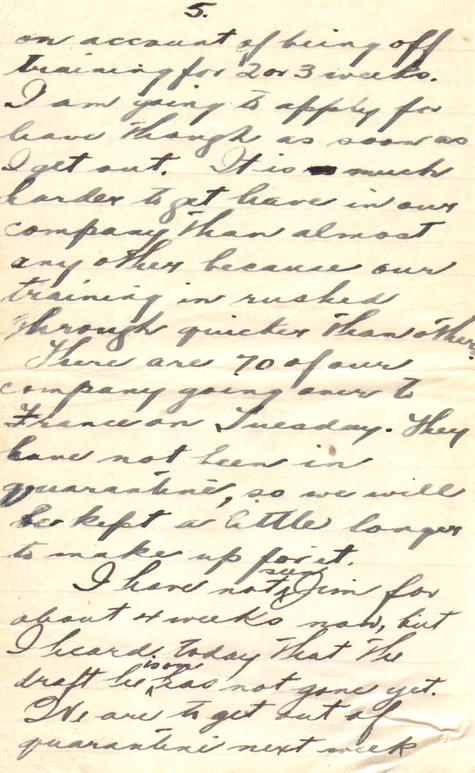 5.
on account of being off
training for 2 or 3 weeks.
I am going to apply for
leave though as soon as
I get out. It is much
harder to get leave in our
company than almost
any other because our
training in rushed
through quicker than others.
There are 70 of our
company going over to
France on Tuesday. They
have not been in
quarantine, so we will
be kept a little longer
to make up for it.
I have not seen Jim for
about 4 weeks now, but
I heard today that the
draft he is on has not gone yet.
We are to get out of
quarantine next week